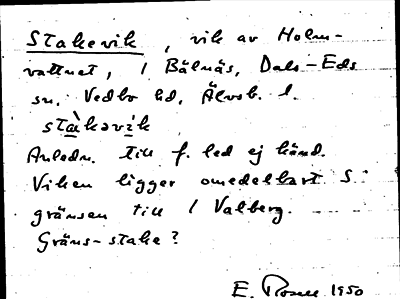 Stakevik, vik av Holm-
vattnet, / Bälnäs, Dals-Eds
sn. Vedbo hd, Älvsb. l.
stàkəvik
Anledn. till f. led ej känd.
Viken ligger omedelbart S
gränsen till / Valberg.
Gräns-stake?
E. 1950